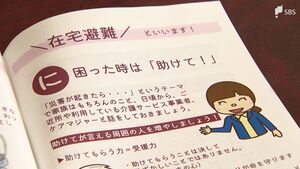 SBS
在宅避難 といいます!
に 困った時は「助けて!」
「災害が起きたら・・・」というテーマ
で家族はもちろんのこと、日頃から、ご
近所や利用している介護サービス事業者、
ケアマネジャーと話をしておきましょう。
助けてが言える周囲の人を増やしましょう!
▶助けてもらう力=受援力
・助けてもらうことは決して